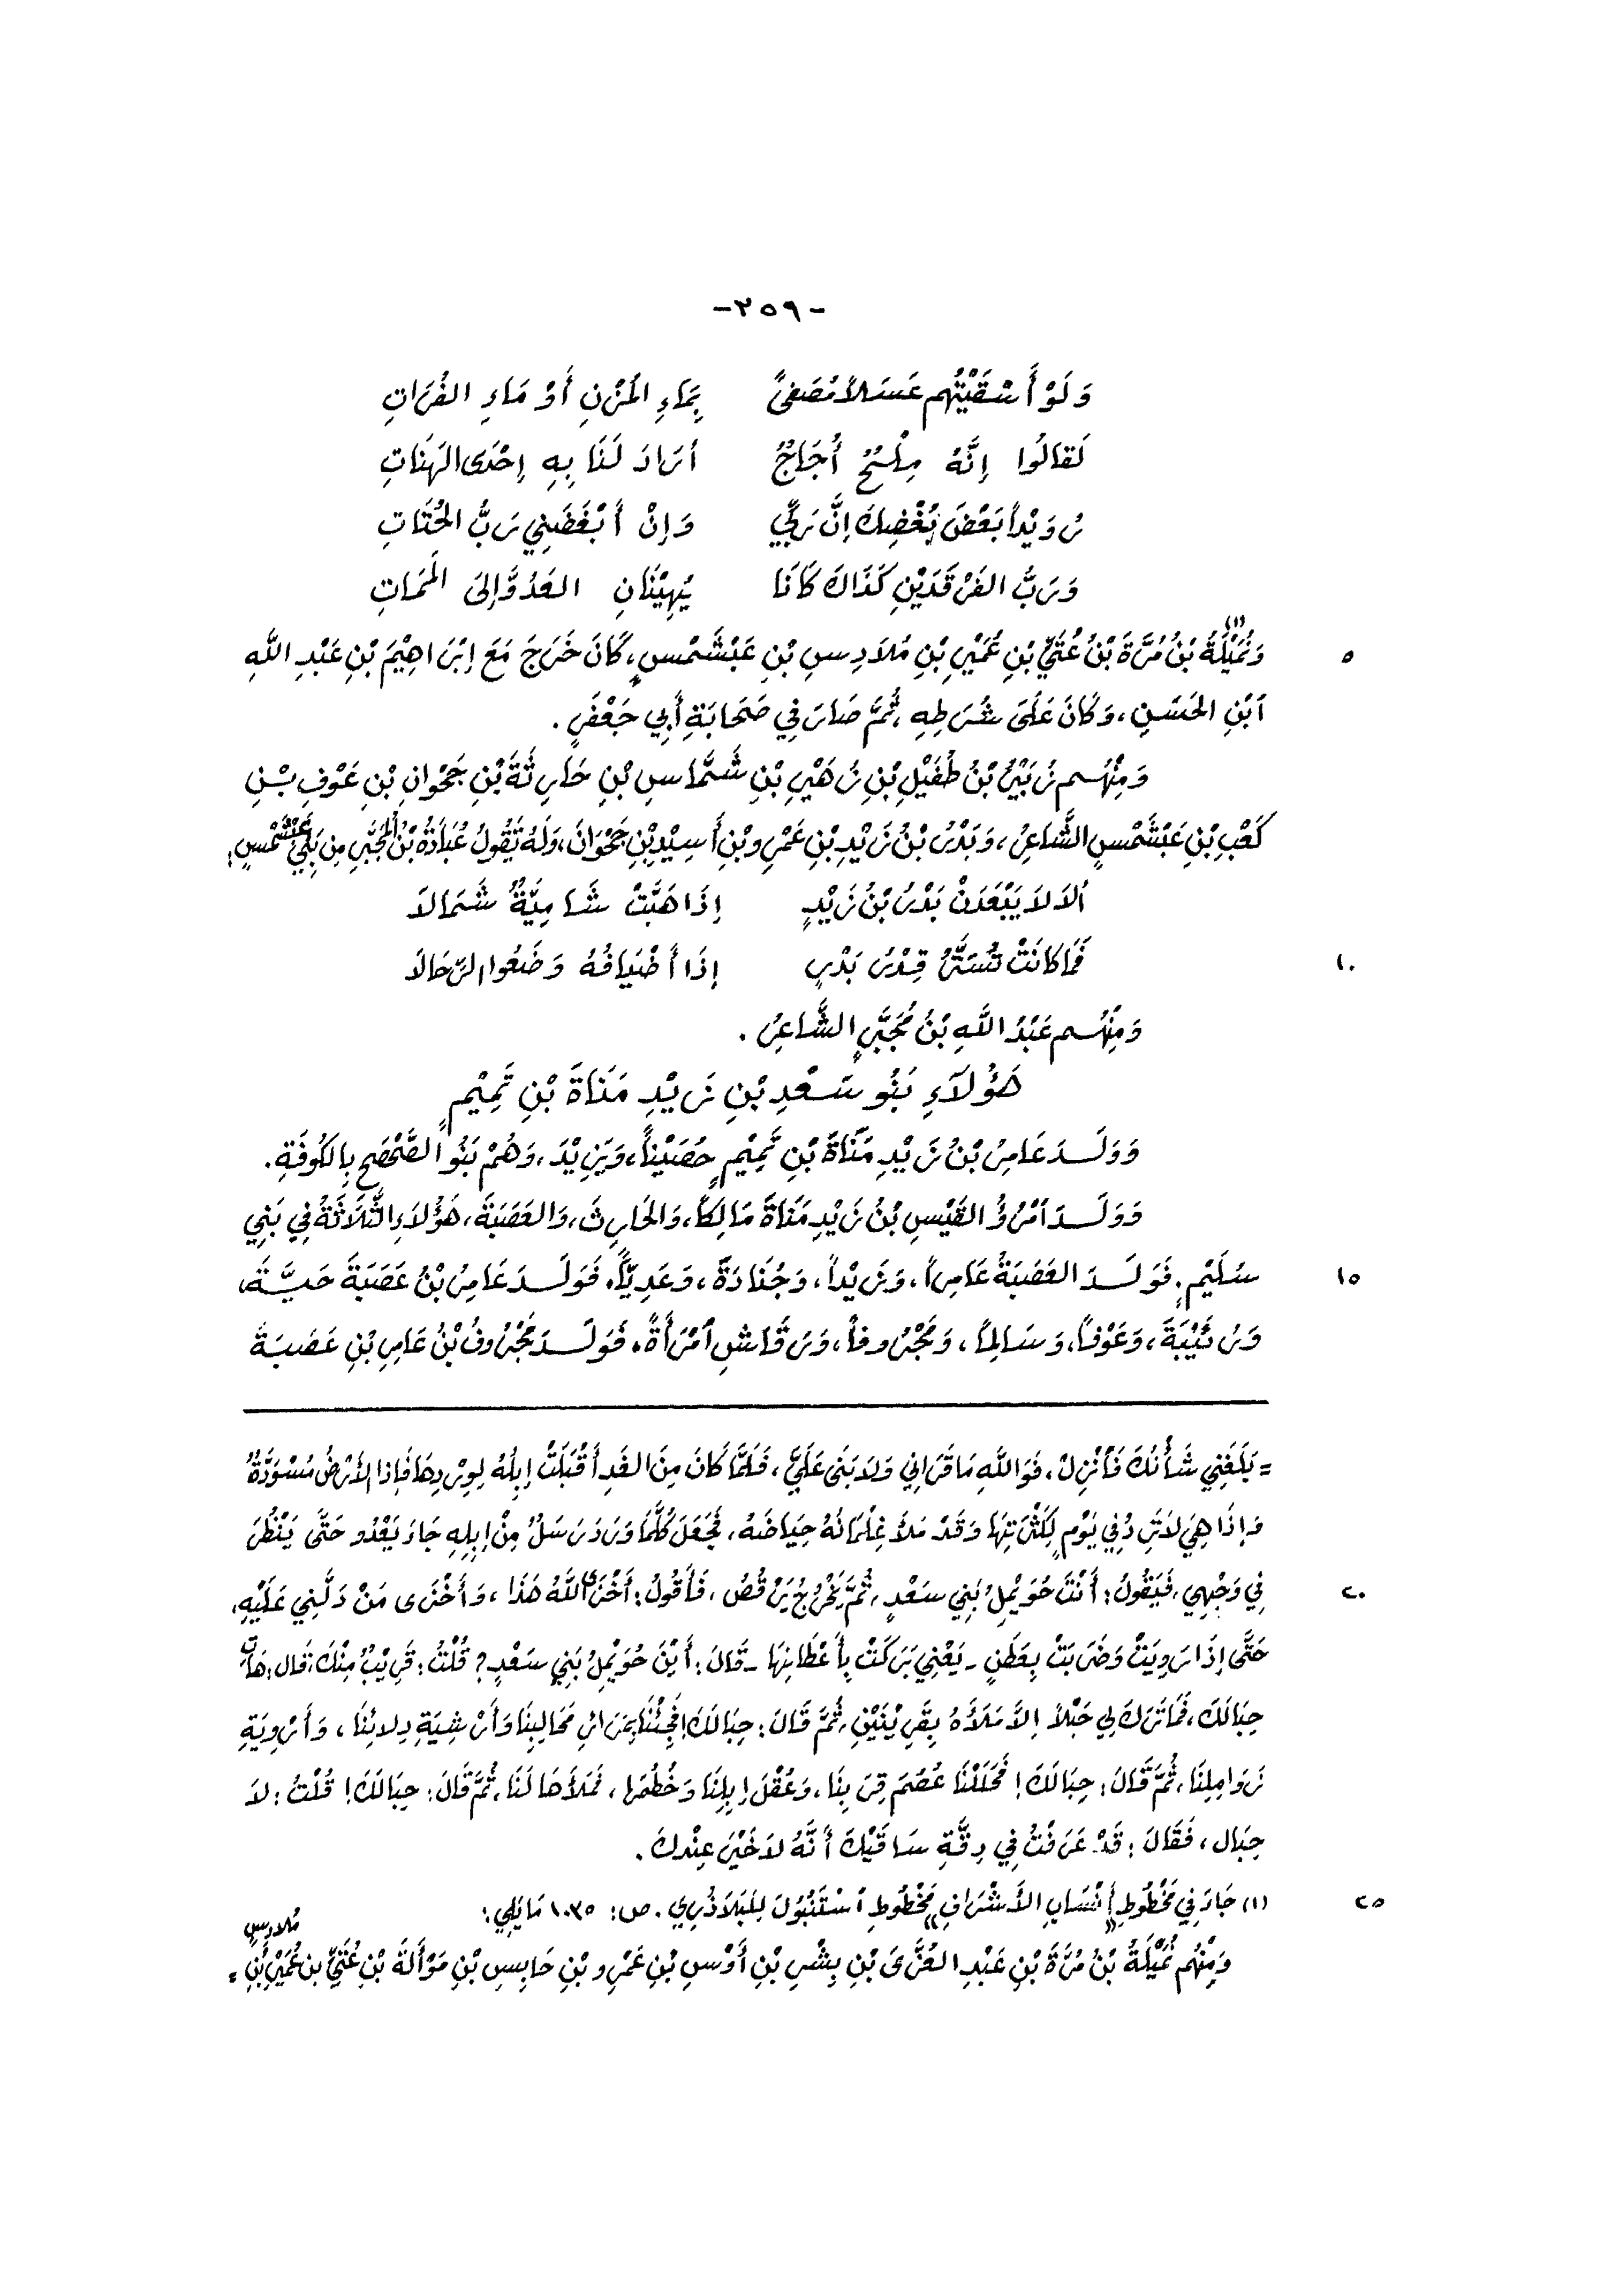 -٢٥٩-
وَلَوْ أَسْقَيْتُهُم عَسَلاً مُصَفىً بِمَاءِ المُزْنِ أَوْ مَاءِ الفُرَاتِ
لَقالُوا إِنَّهُ مِلْحٌ أُجَاجٌ أَرَادَ لَنَا بِهِ إِحْدَى الهَنَاتِ
رُوَيْداً بَعْضَ بُغْضِكَ إِنَّ رَبِّي وَإِنْ أَبْغَضَنِي رَبُّ الحُتَاتِ
وَرَبُّ الفَرْقَدَيْنِ كَذَاكَ كَانَا يُهِيْنَانِ العَدُوَّ إِلَى المَمَاتِ
٥ وَنُمَيْلَةُ (١) بْنُ مُرَّةَ بْنُ عُتَيِّ بْنِ عُمَيْرِ بْنِ مُلَادِسِ بْنِ عَبْشَمْسٍ، كَانَ خَرَجَ مَعَ إِبْرَاهِيْمَ بْنِ عَبْدِ اللَّهِ
ٱبْنِ الحَسَنِ، وَكَانَ عَلَى شُرَطِهِ، ثُمَّ صَارَ فِي صَحَابَةِ أَبِي جَعْفَرٍ.
وَمِنْهُم زُبَيْرُ بْنُ طُفَيْلِ بْنِ زُهَيْرِ بْنِ شَمَّاسِ بْنِ حَارِثَةَ بْنِ جَحْوَانِ بْنِ عَوْفِ بْنِ
كَعْبِ بْنِ عَبْشَمْسٍ الشَّاعِرُ، وَبَدْرُ بْنُ زَيْدِ بْنِ عَمْرِو بْنِ أَسِيْدِ بْنِ جَحْوَانَ، وَلَهُ تَقُولُ عُبَادَةُ بْنُ المُجَبَّرِ مِن بَنِي عَبْشَمْسٍ:
أَلاَ لاَ يَبْعَدَنْ بَدْرُ بْنُ زَيْدٍ إِذَا هَبَّتْ شَامِيَّةٌ شَمَالاَ
١٠ فَمَا كَانَتْ تُسَتَّرُ قِدْرُ بَدْرٍ إِذَا أَضْيَافُهُ وَضَعُوا الرِّحَالاَ
وَمِنْهُم عَبْدُ اللَّهِ بْنُ مُجَبَّرٍ الشَّاعِرُ.
هَؤُلاَءِ بَنُو سَعْدِ بْنِ زَيْدِ مَنَاةَ بْنِ تَمِيْمٍ
وَوَلَدَ عَامِرُ بْنُ زَيْدِ مَنَاةَ بْنِ تَمِيْمٍ حُصَيْناً، وَيَزِيْدَ، وَهُمْ بَنُو الصَّحْصَحِ بِالكُوفَةِ.
وَوَلَدَ ٱمْرُؤُ القَيْسِ بْنُ زَيْدِ مَنَاةَ مَالِكاً، وَالحَارِثَ، وَالعَصَبَةَ، هَؤُلاَءِ الثَّلاَثَةُ فِي بَنِي
١٥ سُلَيْمٍ. فَوَلَدَ العَصَبَةُ عَامِراً، وَزَيْداً، وَجُنَادَةً، وَعَدِيّاً. فَوَلَدَ عَامِرُ بْنُ عَصَبَةَ حَيَّةَ،
وَرُتَيْبَةَ، وَعَوْفاً، وَسَالِماً، وَمَجْرُوفاً، وَرَقَاشِ ٱمْرَأَةً. فَوَلَدَ مَجْرُوفُ بْنُ عَامِرِ بْنِ عَصَبَةَ
= بَلَغَنِي شَأْنُكَ فَٱنْزِلْ، فَوَاللَّهِ مَا قَرَانِي وَلاَ بَنَى عَلَيَّ، فَلَمَّا كَانَ مِنَ الغَدِ أَقْبَلَتْ إِبِلُهُ لِوِرْدِهَا فَإِذا الأَرْضُ مُسْوَدَّةٌ
وَإِذَا هِيَ لاَ تَرِدُ فِي يَوْمٍ لِكَثْرَتِهَا وَقَدْ مَلأَ غِلْمَانُهُ حِيَاضَهُ، فَجَعَلَ كُلَّمَا وَرَدَ رَسَلٌ مِنْ إِبِلِهِ جَاءَ يَعْدُو حَتَّى يَنْظُرَ
٢٠ فِي وَجْهِي، فَيَقُولُ: أَنْتَ حُوَيْمِلُ بَنِي سَعْدٍ، ثُمَّ يَخْرُجُ يَرْقُصُ، فَأَقُولُ: أَخْزَى اللَّهُ هَذَا، وَأَخْزَى مَنْ دَلَّنِي عَلَيْهِ،
حَتَّى إِذَا رَوِيَتْ وَضَرَبَتْ بِعَطَنٍ - يَعْنِي بَرَكَتْ بِأَعْطَانِهَا - قَالَ: أَيْنَ حُوَيْمِلُ بَنِي سَعْدٍ؟ قُلْتُ: قَرِيْبٌ مِنْكَ، قَال: هَاتِ
حِبَالَكَ، فَمَا تَرَكَ لِي حَبْلاً إِلاَّ مَلَأَهُ بِقَرِيْنَيْنِ، ثُمَّ قَالَ: حِبَالَكَ! فَجِئْنَا بِمَرَائِرِ مَحَالِبِنَا وَأَرْشِيَةِ دِلائِنَا، وَأَرْوِيَةِ
زَوَامِلِنَا، ثُمَّ قَالَ: حِبَالَكَ! فَحَلَلْنَا عُصَمَ قِرَبِنَا، وَعُقْلَ إِبِلِنَا وَخُطُمَهَا، فَمَلَأَهَا لَنَا، ثُمَّ قَالَ: حِبَالَكَ! قُلْتُ: لاَ
حِبَال، فَقَالَ: قَدْ عَرَفْتُ فِي دِقَّةِ سَاقَيْكَ أَنَّهُ لاَ خَيْرَ عِنْدكَ.
٢٥ (١) جَاءَ فِي مَخْطُوطِ «أَنْسَابِ الأَشْرَافِ» مَخْطُوطِ ٱسْتَنْبُولَ لِلبَلاَذُرِي. ص: ١٠٣٥ مَا يَلِي:
وَمِنْهُم نُمَيْلَةُ بْنُ مُرَّةَ بْنِ عَبْدِ العُزَّى بْنِ بِشْرِ بْنِ أَوْسِ بْنِ عَمْرِو بْنِ حَابِسِ بْنِ مَوْأَلَةَ بْنِ عُتَيِّ بن عُمَيْرِ بْنِ مُلادِسٍ =